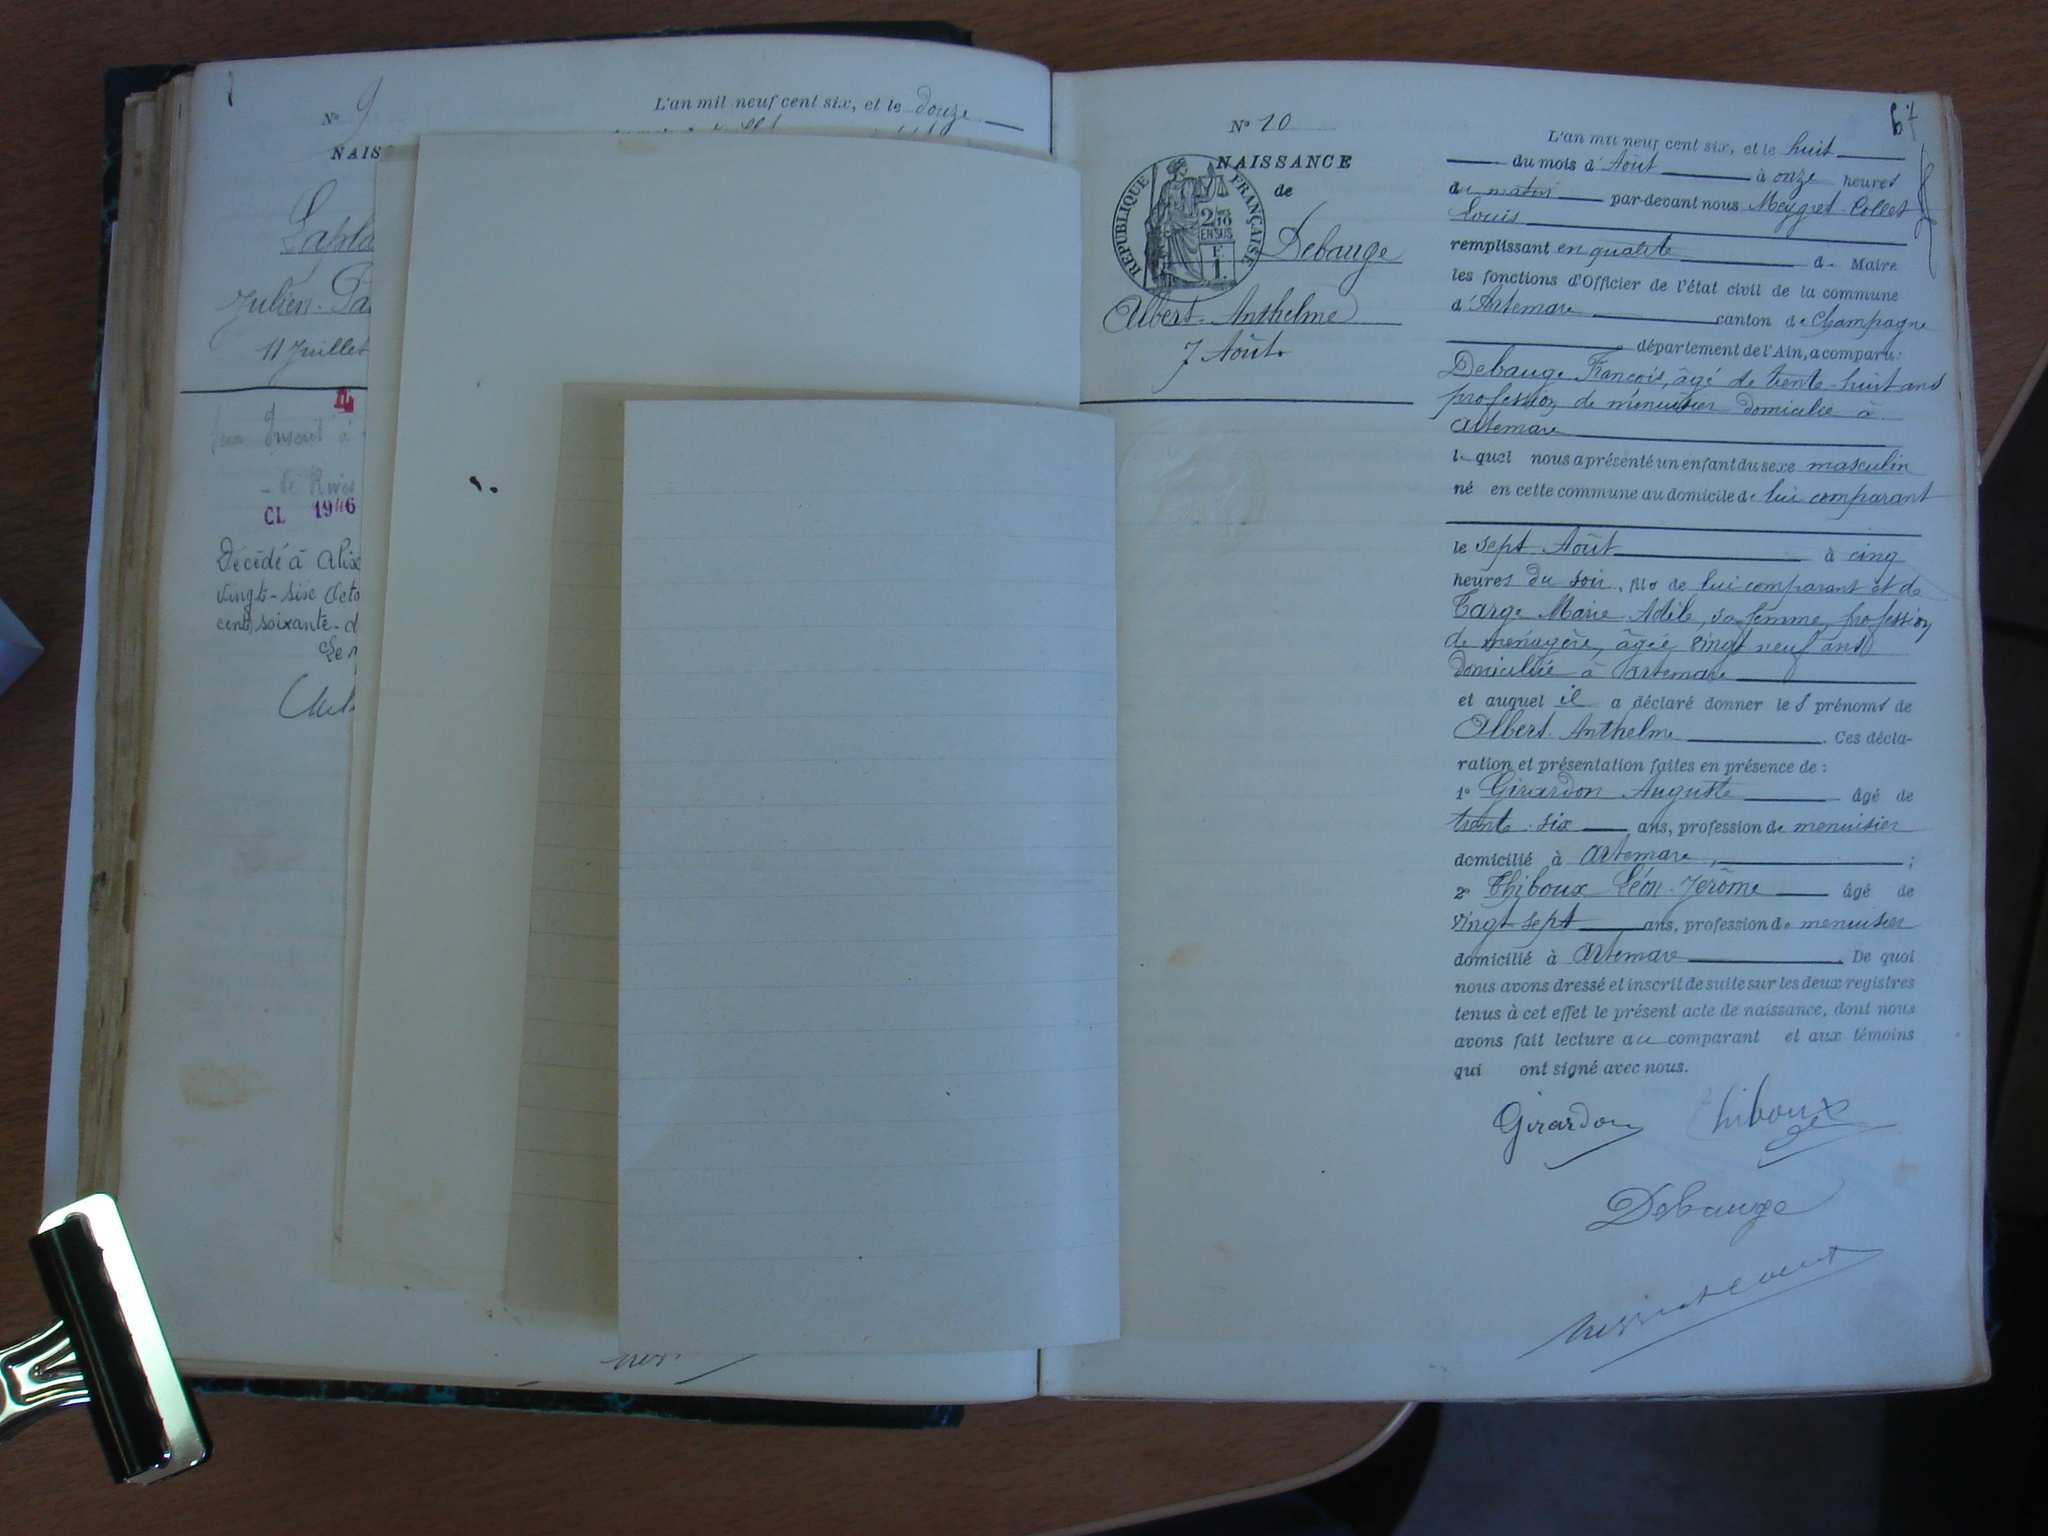 N° 9
L'an mil neuf cent six, et le douze
NAIS
Julien
11 Juillet
Inscrit à
de Rives
CL 1946
Décédé à
vingt-six Octo
cent soixante-d
67
N° 10
NAISSANCE
de
RÉPUBLIQUE FRANÇAISE
2/10
EN SUS
F.
1.
Debauge
Albert Anthelme
7 Août
L'an mil neuf cent six, et le huit
du mois d'Août à onze heures
du matin par-devant nous Meygret-Collet
Louis
remplissant en qualité de Maire
les fonctions d'Officier de l'état civil de la commune
d'Artemare canton de Champagne
département de l'Ain, a comparu:
Debauge François, âgé de trente-huit ans
profession de menuisier domicilié à
Artemare
lequel nous a présenté un enfant du sexe masculin
né en cette commune au domicile de lui comparant
le sept Août à cinq
heures du soir, fils de lui comparant et de
Targe Marie Adèle, sa femme, profession
de ménagère, âgée vingt neuf ans
domiciliée à Artemare
et auquel il a déclaré donner les prénoms de
Albert Anthelme. Ces décla-
ration et présentation faites en présence de :
1° Girardon Auguste âgé de
trente-six ans, profession de menuisier
domicilié à Artemare, ;
2° Thiboux Léon-Jérôme âgé de
vingt-sept ans, profession de menuisier
domicilié à Artemare. De quoi
nous avons dressé et inscrit de suite sur les deux registres
tenus à cet effet le présent acte de naissance, dont nous
avons fait lecture au comparant et aux témoins
qui ont signé avec nous.
Girardon Thiboux
Debauge